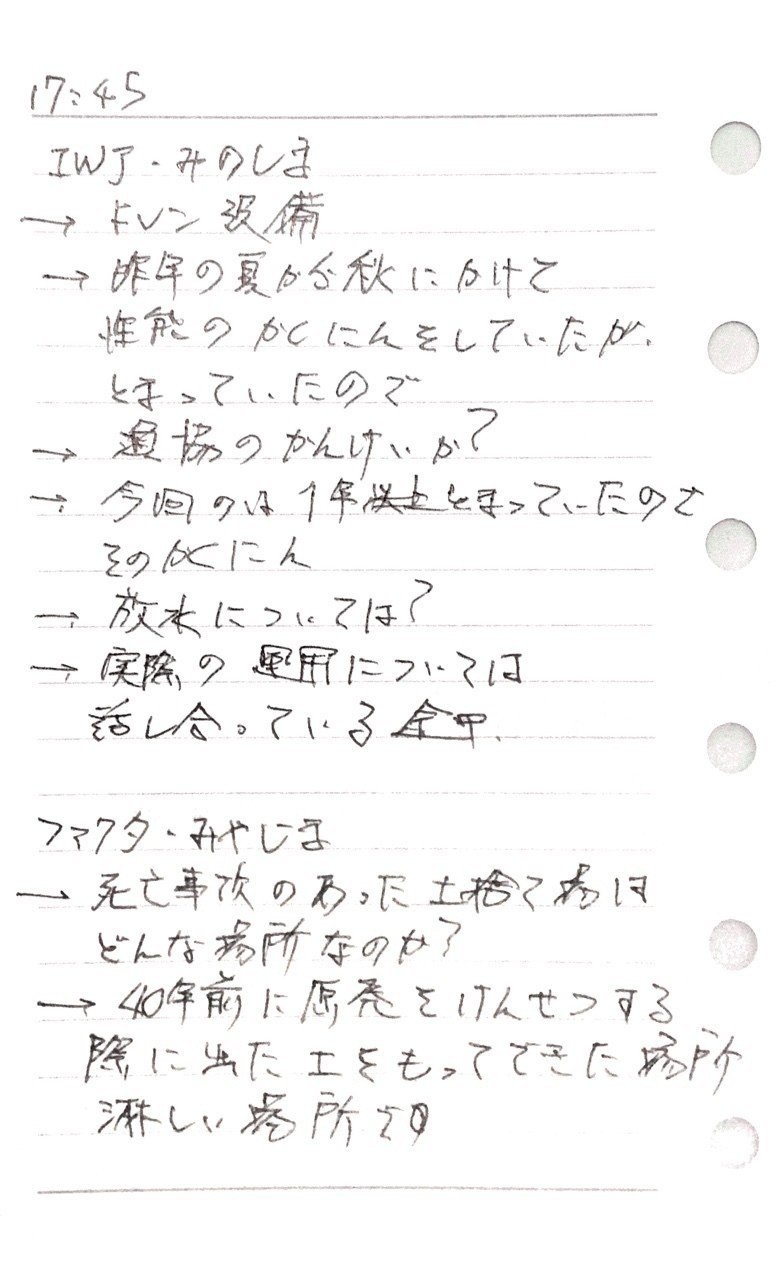 17:45
IWJ・みのしま
→ ドレン設備
→ 昨年の夏から秋にかけて
性能のかくにんをしていたが、
とまっていたので
→ 漁協のかんけいか?
→ 今回のは1年以上とまっていたので
そのかくにん
→ 放水については?
→ 実際の運用については
話し合っている途中.
ファクタ・みやじま
→ 死亡事故のあった土捨て場は
どんな場所なのか?
→ 40年前に原発をけんせつする
際に出た土をもってできた場所
淋しい場所です